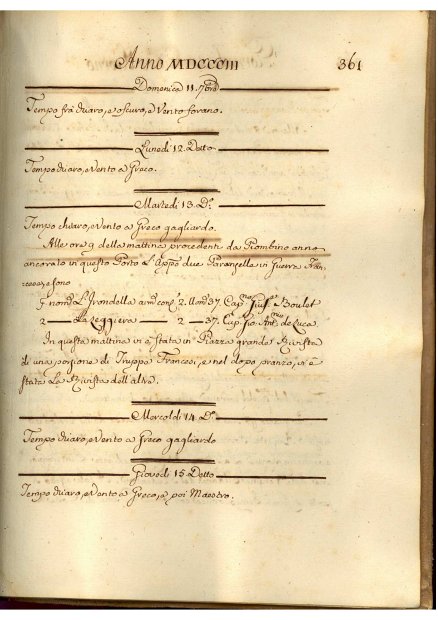 Anno MDCCCIII 361
Domenica 11. 7bre
Tempo frà chiaro, e oscuro, e Vento forano.
Lunedì 12. Detto
Tempo chiaro, e Vento a Greco.
Martedì 13. D.º
Tempo chiaro, e Vento a Greco gagliardo.
Alle ore 9 della mattina procedenti da Piombino anno
ancorato in questo Porto L'app.º due Paranzelle in Guerra Fran-
cesi, e sono
nom.ª L'Irondella 2. 37. Cap. Boulet
2 — La Leggiera — 2 — 37. Cap. Gio. Ant. de Luca
In questa mattina vi è stata in Piazza grande Rivista
di una porzione di Truppa Francesi, e nel dopo pranzo, vi è
stata La Rivista dell'
Mercoldì 14. D.º
Tempo chiaro, e Vento a Greco gagliardo
Giovedì 15. Detto
Tempo chiaro, e Vento a Greco, e poi Maestro.